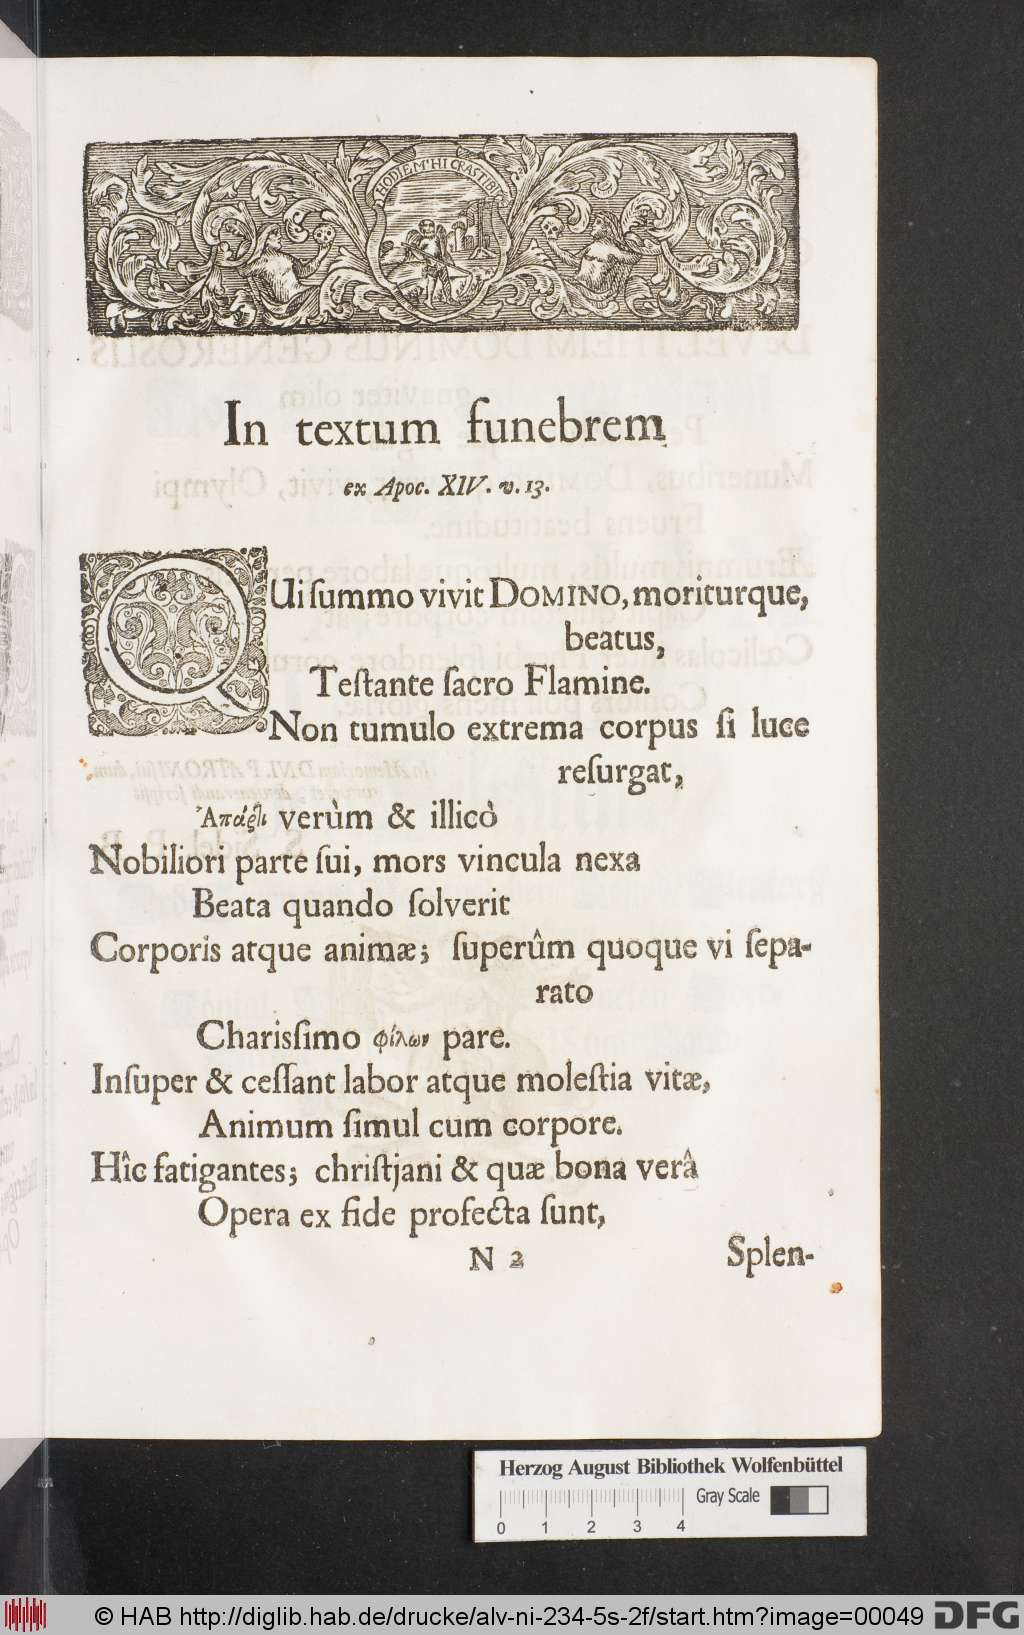 HODIE M'HI CRAS TIBI
In textum funebrem
ex Apoc. XIV. v. 13.
QUi ſummo vivit DOMINO, moriturque,
beatus,
Teſtante ſacro Flamine.
Non tumulo extrema corpus ſi luce
reſurgat,
verùm & illicò
Nobiliori parte ſui, mors vincula nexa
Beata quando ſolverit
Corporis atque animæ; ſuperûm quoque vi ſepa-
rato
Chariſſimo φίλων pare.
Inſuper & ceſſant labor atque moleſtia vitæ,
Animum ſimul cum corpore.
Hîc fatigantes; chriſtjani & quæ bona verâ
Opera ex fide profecta ſunt,
N 2
Splen-
Herzog August Bibliothek Wolfenbüttel
Gray Scale
0 1 2 3 4
© HAB http://diglib.hab.de/drucke/alv-ni-234-5s-2f/start.htm?image=00049
DFG